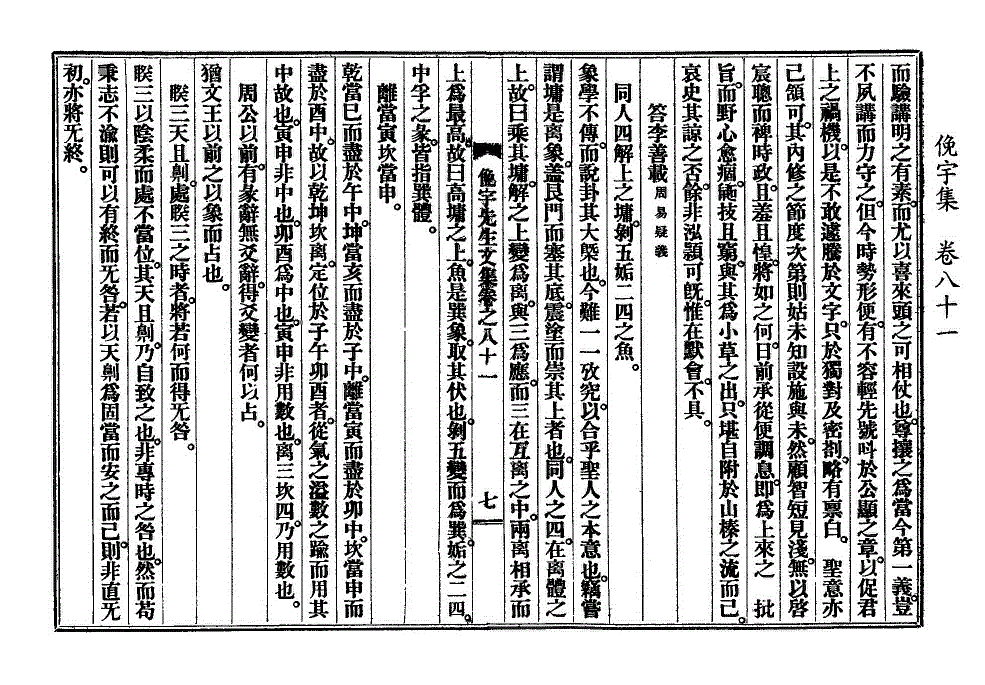 俛宇集 卷八十一
而驗講明之有素。而尤以喜來頭之可相仗也。尊攘之爲當今第一義。豈
不夙講而力守之。但今時勢形便。有不容輕先號呌於公顯之章。以促君
上之禍機。以是不敢遽騰於文字。只於獨對及密劄。略有禀白。 聖意亦
已頷可。其內修之節度次第則姑未知設施與未。然顧智短見淺。無以啓
宸聰而裨時政。且羞且惶。將如之何。日前承從便調息。卽爲上來之 批
旨。而野心愈痼。鼫技且窮。與其爲小草之出。只堪自附於山榛之流而已。
哀史其諒之否。餘非泓潁可旣。惟在默會。不具。
答李善載 周易疑義
同人四解上之墉。剝五姤二四之魚。
象學不傳。而說卦其大槩也。今難一一攷究。以合乎聖人之本意也。竊嘗
謂墉是离象。盖艮門而塞其底。震塗而崇其上者也。同人之四。在离體之
上。故曰乘其墉。解之上變爲离。與三爲應。而三在互离之中。兩离相承而
俛宇先生文集卷之八十一 七
上爲最高。故曰高墉之上。魚是巽象。取其伏也。剝五變而爲巽。姤之二四。
中孚之彖。皆指巽體。
離當寅坎當申。
乾當巳而盡於午中。坤當亥而盡於子中。離當寅而盡於卯中。坎當申而
盡於酉中。故以乾坤坎离。定位於子午卯酉者。從氣之溢數之踰而用其
中故也。寅申非中也。卯酉爲中也。寅申非用數也。离三坎四。乃用數也。
周公以前。有彖辭無爻辭。得爻變者何以占。
猶文王以前之以象而占也。
睽三天且劓。處睽三之時者。將若何而得无咎。
睽三以陰柔而處不當位。其天且劓。乃自致之也。非專時之咎也。然而苟
秉志不渝則可以有終而无咎。若以天劓爲固當而安之而已。則非直无
初。亦將无終。